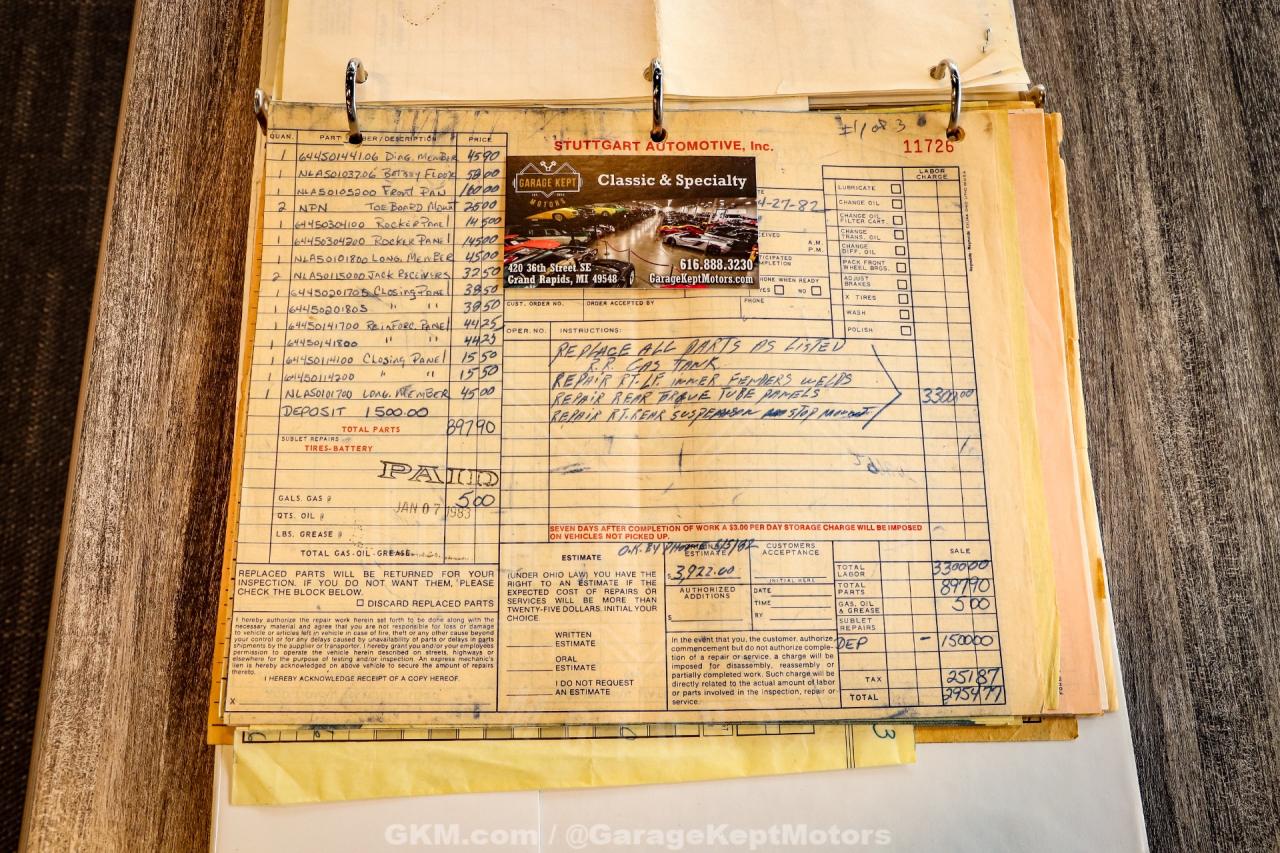 #1 of 3
STUTTGART AUTOMOTIVE, Inc.
11726
QUAN. PART /DESCRIPTION PRICE
1 64450144106 Diag. Member 4590
1 NLA50103706 Floor 5800
1 NLA50105200 Front Pan 16000
2 NPN Toe Board Mount 2500
1 64450304100 Rocker Panel 14500
1 64450304200 Rocker Panel 14500
1 NLA50101800 Long. Member 4500
2 NLA50115000 Jack Receivers 3250
1 64450201705 Closing Panel 3850
1 64450201805 " " 3850
1 64450141700 Reinforc. Panel 4425
1 64450141800 " " 4425
1 64450114100 Closing Panel 1550
1 64450114200 " " 1550
1 NLA50101700 Long. Member 4500
DEPOSIT 1500.00
TOTAL PARTS 89790
SUBLET REPAIRS
TIRES-BATTERY
PAID
JAN 07 1983
GALS. GAS @ 500
QTS. OIL @
LBS. GREASE @
TOTAL GAS-OIL-GREASE
GARAGE KEPT
MOTORS
Classic & Specialty
420 36th Street SE
Grand Rapids, MI 49548
616.888.3230
GarageKeptMotors.com
4-27-82
A.M.
P.M.
PHONE WHEN READY
YES NO
CUST. ORDER NO. ORDER ACCEPTED BY PHONE
LABOR CHARGE
LUBRICATE
CHANGE OIL
CHANGE OIL FILTER CART.
CHANGE TRANS. OIL
CHANGE DIFF. OIL
PACK FRONT WHEEL BRGS.
ADJUST BRAKES
X TIRES
WASH
POLISH
OPER. NO. INSTRUCTIONS:
REPLACE ALL PARTS AS LISTED
R.R. GAS TANK
REPAIR RT. LF. INNER FENDERS WELDS
REPAIR REAR TORQUE TUBE PANELS 330000
REPAIR RT. REAR SUSPENSION STOP MOUNT
SEVEN DAYS AFTER COMPLETION OF WORK A $3.00 PER DAY STORAGE CHARGE WILL BE IMPOSED
ON VEHICLES NOT PICKED UP.
REPLACED PARTS WILL BE RETURNED FOR YOUR
INSPECTION. IF YOU DO NOT WANT THEM, PLEASE
CHECK THE BLOCK BELOW.
DISCARD REPLACED PARTS
I hereby authorize the repair work herein set forth to be done along with the
necessary material and agree that you are not responsible for loss or damage
to vehicle or articles left in vehicle in case of fire, theft or any other cause beyond
your control or for any delays caused by unavailability of parts or delays in parts
shipments by the supplier or transporter. I hereby grant you and/or your employees
permission to operate the vehicle herein described on streets, highways or
elsewhere for the purpose of testing and/or inspection. An express mechanic's
lien is hereby acknowledged on above vehicle to secure the amount of repairs
thereto.
I HEREBY ACKNOWLEDGE RECEIPT OF A COPY HEREOF.
X
ESTIMATE
O.K. BY PHONE
(UNDER OHIO LAW) YOU HAVE THE
RIGHT TO AN ESTIMATE IF THE
EXPECTED COST OF REPAIRS OR
SERVICES WILL BE MORE THAN
TWENTY-FIVE DOLLARS. INITIAL YOUR
CHOICE.
WRITTEN ESTIMATE
ORAL ESTIMATE
I DO NOT REQUEST AN ESTIMATE
ESTIMATE
$3,922.00
AUTHORIZED ADDITIONS
$
CUSTOMERS ACCEPTANCE
INITIAL HERE
DATE
TIME
BY
In the event that you, the customer, authorize
commencement but do not authorize comple-
tion of a repair or service, a charge will be
imposed for disassembly, reassembly or
partially completed work. Such charge will be
directly related to the actual amount of labor
or parts involved in the inspection, repair or
service.
SALE
TOTAL LABOR 330000
TOTAL PARTS 89790
GAS, OIL & GREASE 500
SUBLET REPAIRS
DEP - 150000
TAX 25187
TOTAL 295477
GKM.com / @GarageKeptMotors